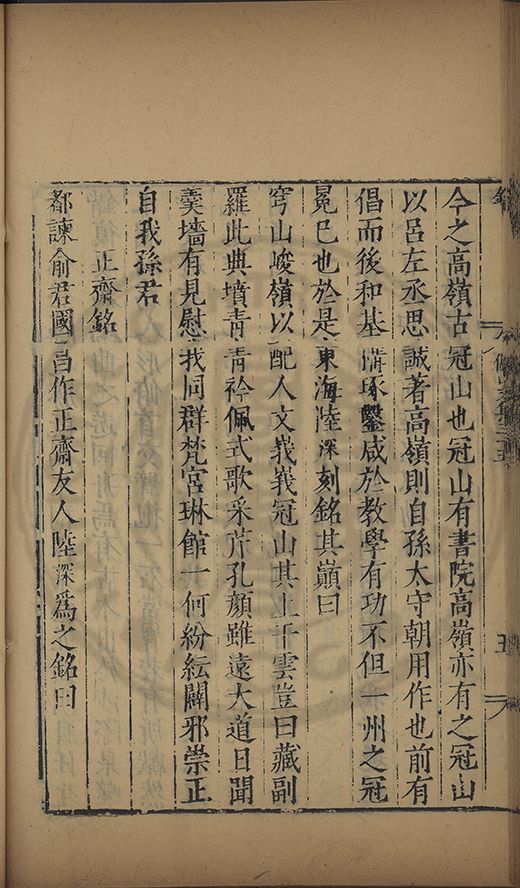 今之高嶺古冠山也冠山有書院高嶺亦有之冠山
以呂左丞思誠著高嶺則自孫太守朝用作也前有
倡而後和基構琢鑿咸於教學有功不但一州之冠
冕已也於是東海陸深刻銘其巔曰
穹山峻嶺以配人文峩峩冠山其上干雲豈曰藏副
羅此典墳青青衿佩式歌采芹孔顏雖遠大道日聞
羹墻有見慰我同群梵宮琳館一何紛紜闢邪崇正
自我孫君
正齋銘
都諫俞君國昌作正齋友人陸深爲之銘曰